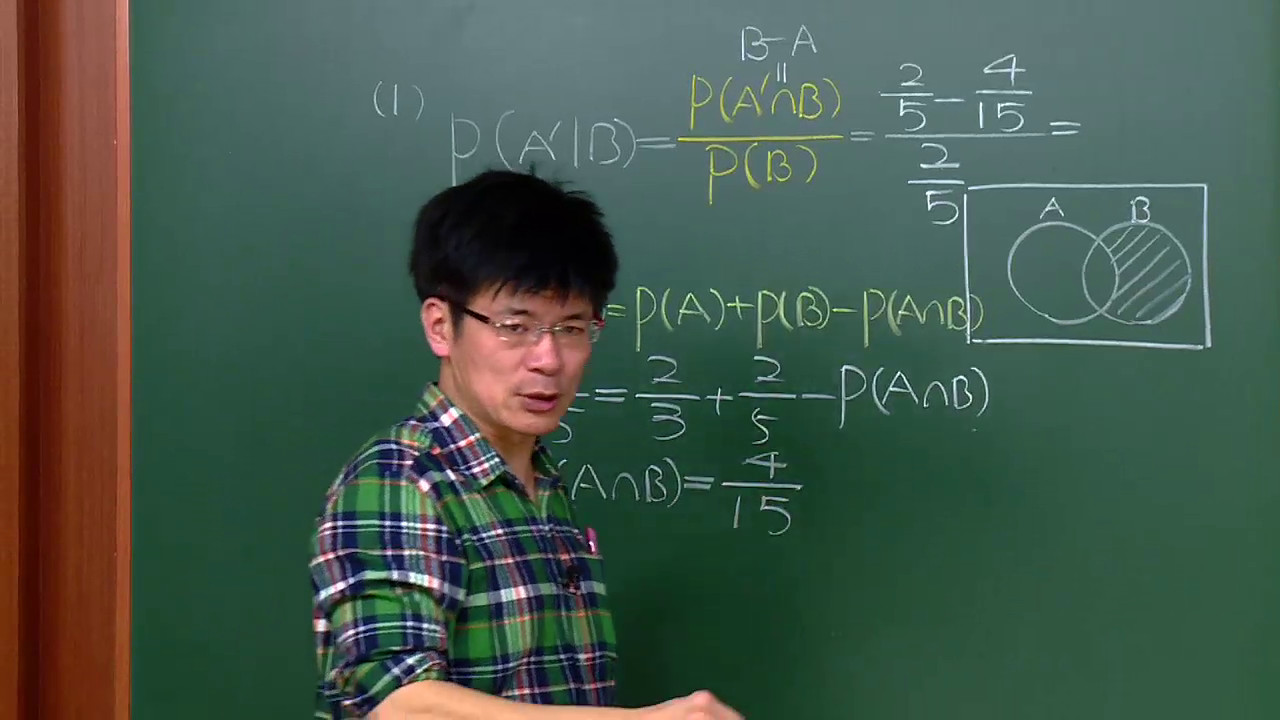 B-A
||
(1) P(A'|B)=P(A'∩B)/P(B)=(2/5-4/15)/(2/5)=
A B
=P(A)+P(B)-P(A∩B)
=2/3+2/5-P(A∩B)
(A∩B)=4/15